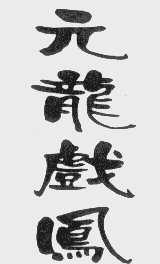 元龍戲鳳